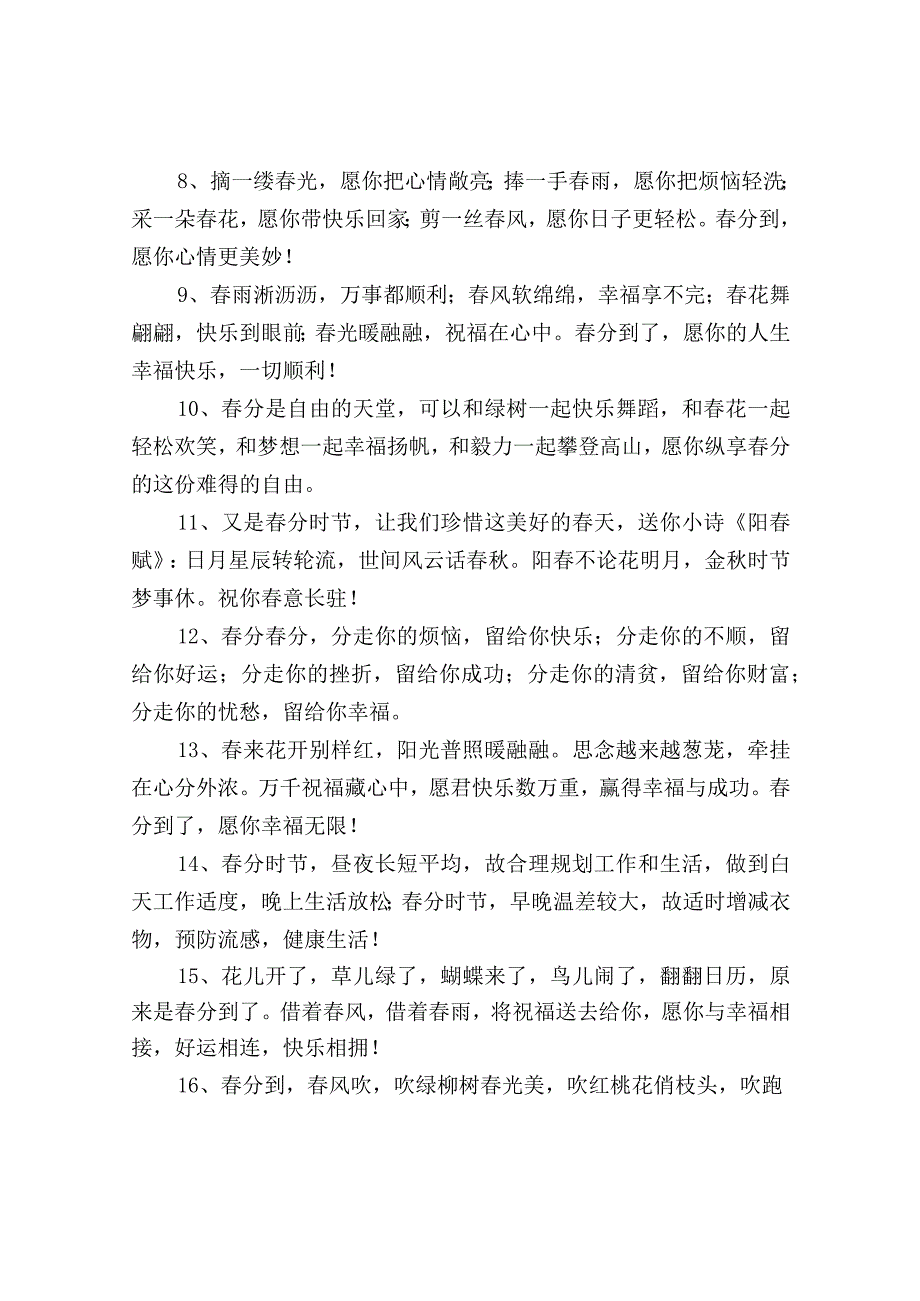 8、摘一缕春光，愿你把心情敞亮；捧一手春雨，愿你把烦恼轻洗；
采一朵春花，愿你带快乐回家；剪一丝春风，愿你日子更轻松。春分到，
愿你心情更美妙！
9、春雨淅沥沥，万事都顺利；春风软绵绵，幸福享不完；春花舞
翩翩，快乐到眼前；春光暖融融，祝福在心中。春分到了，愿你的人生
幸福快乐，一切顺利！
10、春分是自由的天堂，可以和绿树一起快乐舞蹈，和春花一起
轻松欢笑，和梦想一起幸福扬帆，和毅力一起攀登高山，愿你纵享春分
的这份难得的自由。
11、又是春分时节，让我们珍惜这美好的春天，送你小诗《阳春
赋》：日月星辰转轮流，世间风云话春秋。阳春不论花明月，金秋时节
梦事休。祝你春意长驻！
12、春分春分，分走你的烦恼，留给你快乐；分走你的不顺，留
给你好运；分走你的挫折，留给你成功；分走你的清贫，留给你财富；
分走你的忧愁，留给你幸福。
13、春来花开别样红，阳光普照暖融融。思念越来越葱茏，牵挂
在心分外浓。万千祝福藏心中，愿君快乐数万重，赢得幸福与成功。春
分到了，愿你幸福无限！
14、春分时节，昼夜长短平均，故合理规划工作和生活，做到白
天工作适度，晚上生活放松；春分时节，早晚温差较大，故适时增减衣
物，预防流感，健康生活！
15、花儿开了，草儿绿了，蝴蝶来了，鸟儿闹了，翻翻日历，原
来是春分到了。借着春风，借着春雨，将祝福送去给你，愿你与幸福相
接，好运相连，快乐相拥！
16、春分到，春风吹，吹绿柳树春光美，吹红桃花俏枝头，吹跑